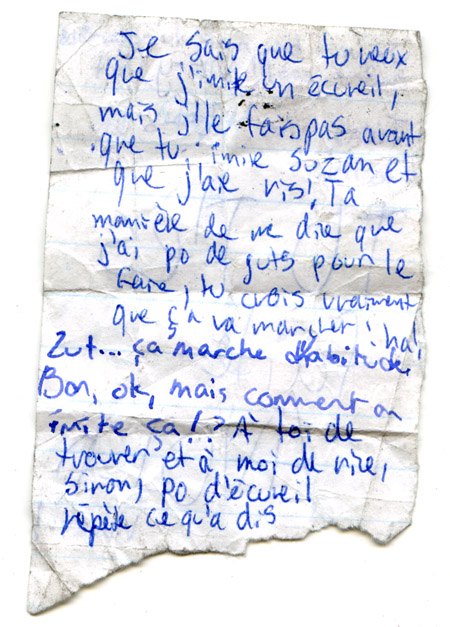 Je sais que tu veux
que j'imite un écureil,
mais j'le fais pas avant
que tu imite Suzan et
que j'aie ris! Ta
manière de me dire que
j'ai po de guts pour le
faire, tu crois vraiment
que ça va marcher! ha!
Zut... ça marche d'habitude.
Bon, ok, mais comment on
imite ça!? À toi de
trouver et à moi de rire,
sinon, po d'écureil
répète ce qu'a dis